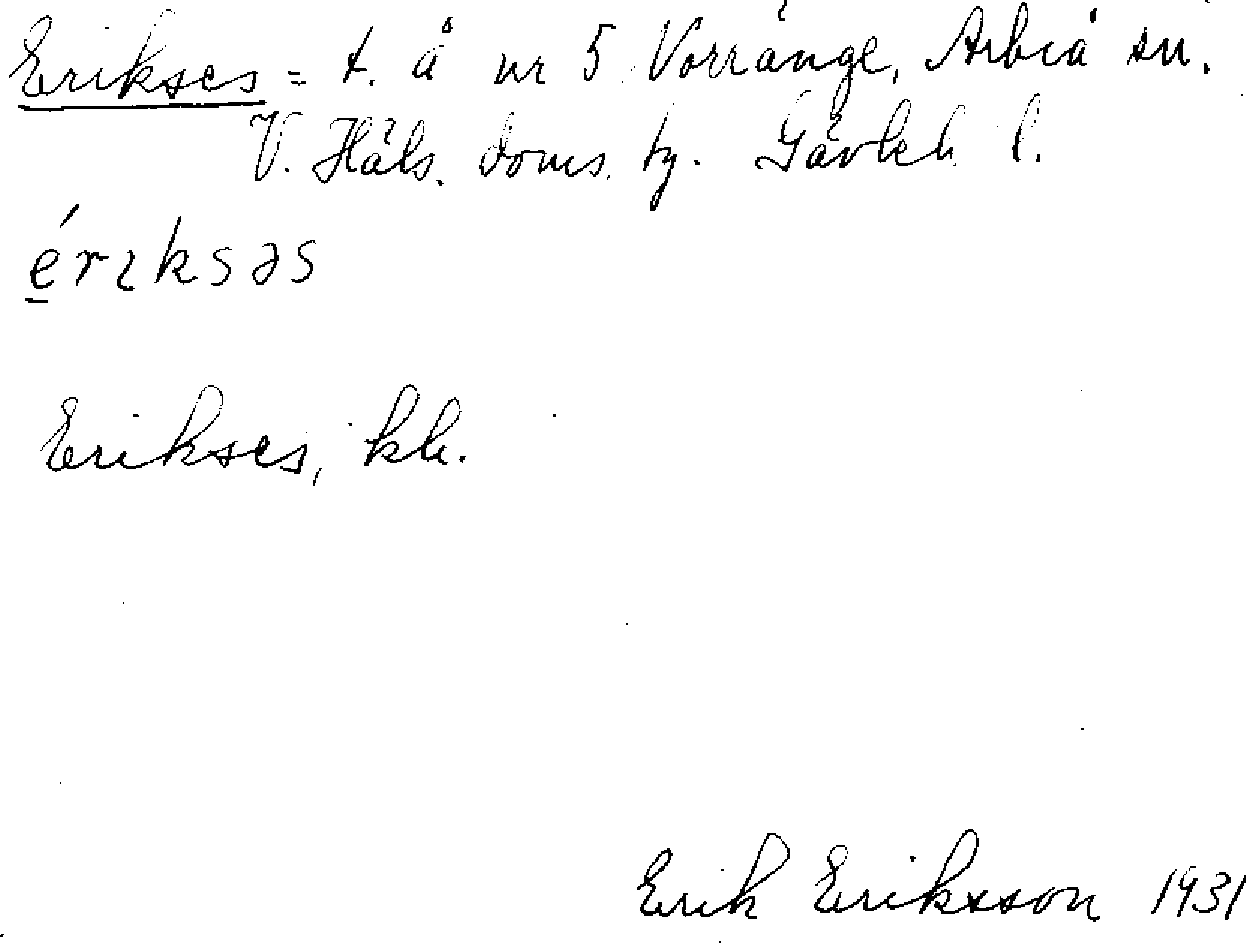 Erikses = t. å nr 5 Vorränge, Arbrå sn.
V. Häls. doms. tg. Gävleb. l.
érɩksəs
Erikses, kh.
Erik Eriksson 1931